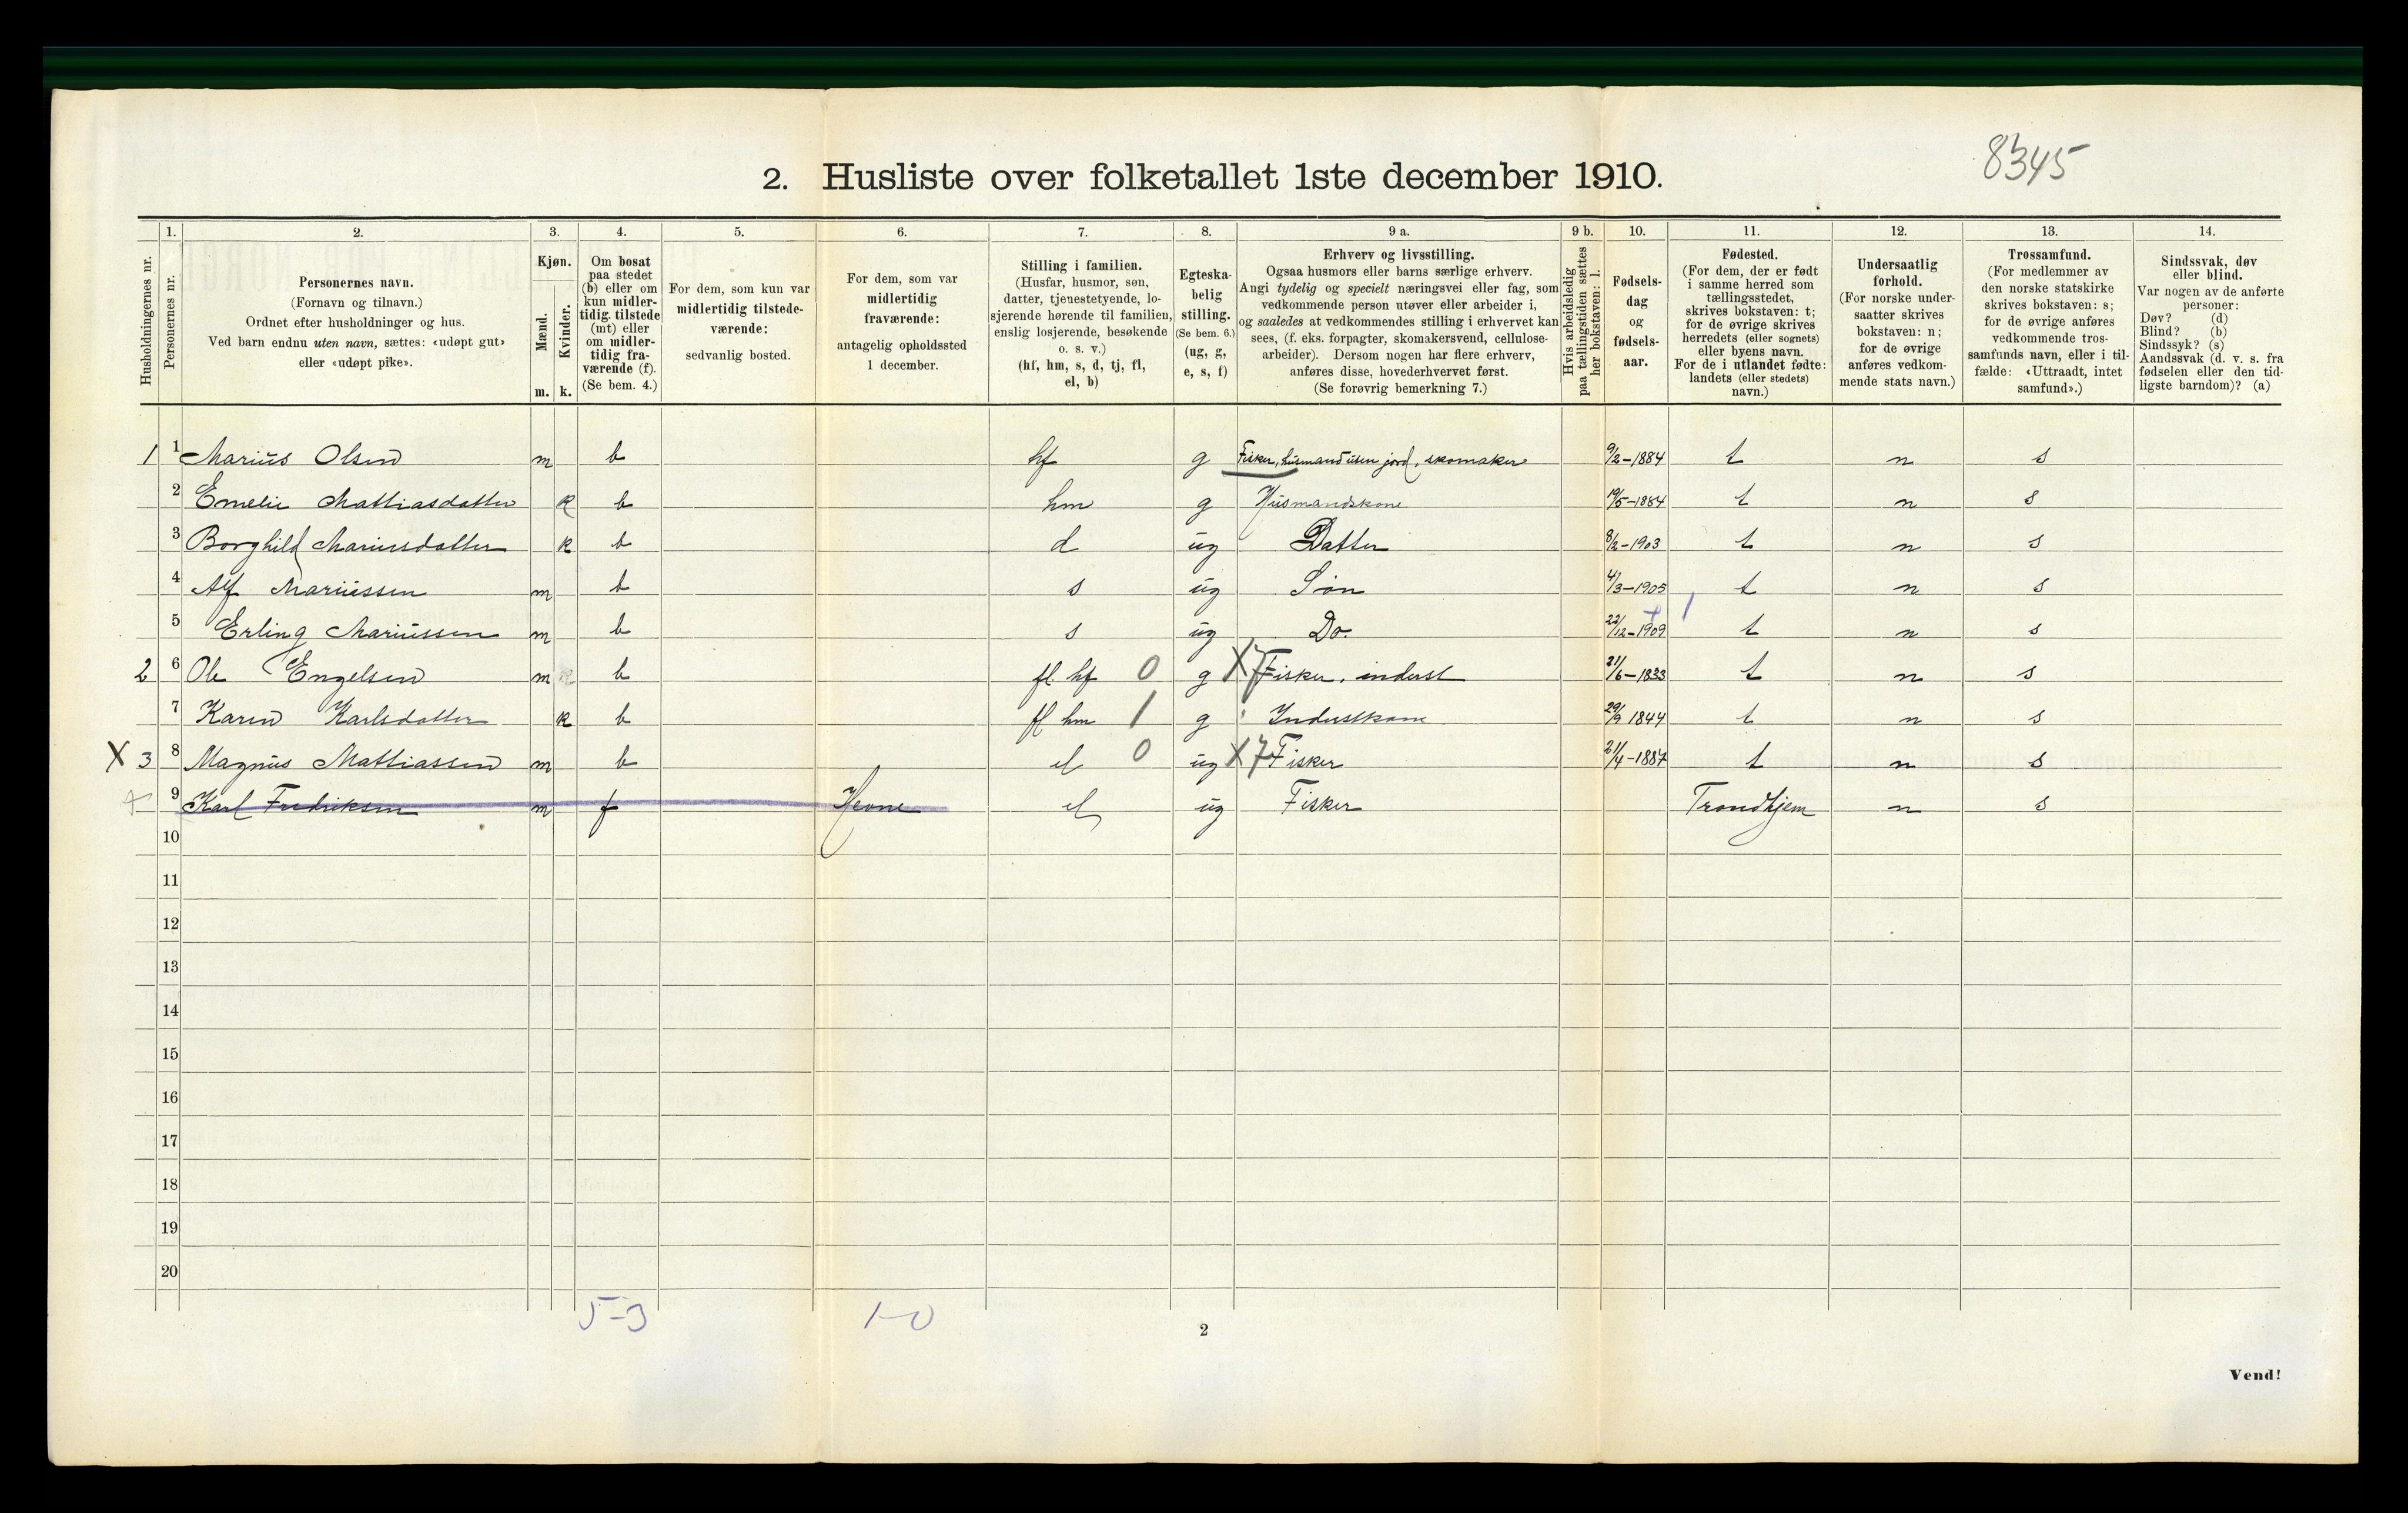 8345
2. Husliste over folketallet 1ste december 1910.
Husholdningernes nr.
1. Personernes nr.
2. Personernes navn. (Fornavn og tilnavn.) Ordnet efter husholdninger og hus. Ved barn endnu uten navn, sættes: «udøpt gut» eller «udøpt pike».
3. Kjøn. Mænd. m. Kvinder. k.
4. Om bosat paa stedet (b) eller om kun midlertidig tilstede (mt) eller om midlertidig fraværende (f). (Se bem. 4.)
5. For dem, som kun var midlertidig tilstedeværende: sedvanlig bosted.
6. For dem, som var midlertidig fraværende: antagelig opholdssted 1 december.
7. Stilling i familien. (Husfar, husmor, søn, datter, tjenestetyende, losjerende hørende til familien, enslig losjerende, besøkende o. s. v.) (hf, hm, s, d, tj, fl, el, b)
8. Egteskabelig stilling. (Se bem. 6.) (ug, g, e, s, f)
9 a. Erhverv og livsstilling. Ogsaa husmors eller barns særlige erhverv. Angi tydelig og specielt næringsvei eller fag, som vedkommende person utøver eller arbeider i, og saaledes at vedkommendes stilling i erhvervet kan sees, (f. eks. forpagter, skomakersvend, cellulosearbeider). Dersom nogen har flere erhverv, anføres disse, hovederhvervet først. (Se forøvrig bemerkning 7.)
9 b. Hvis arbeidsledig paa tællingstiden sættes her bokstaven: l.
10. Fødselsdag og fødselsaar.
11. Fødested. (For dem, der er født i samme herred som tællingsstedet, skrives bokstaven: t; for de øvrige skrives herredets (eller sognets) eller byens navn. For de i utlandet fødte: landets (eller stedets) navn.)
12. Undersaatlig forhold. (For norske undersaatter skrives bokstaven: n; for de øvrige anføres vedkommende stats navn.)
13. Trossamfund. (For medlemmer av den norske statskirke skrives bokstaven: s; for de øvrige anføres vedkommende trossamfunds navn, eller i tilfælde: «Uttraadt, intet samfund».)
14. Sindssvak, døv eller blind. Var nogen av de anførte personer: Døv? (d) Blind? (b) Sindssyk? (s) Aandssvak (d. v. s. fra fødselen eller den tidligste barndom)? (a)
1 1 Marius Olsen m b hf g Fisker, husmand uten jord, skomaker 9/2-1884 t n s
2 Emelie Mathiasdatter k b hm g Husmandskone 19/5-1884 t n s
3 Borghild Mariusdatter k b d ug Datter 8/2-1903 t n s
4 Alf Mariussen m b s ug Søn 4/3-1905 t n s
5 Erling Mariussen m b s ug Do. 22/12-1909 t n s
2 6 Ole Engelsen m b fl. hf 0 g X7 Fisker, inderst 21/6-1833 t n s
7 Karen Karlsdatter k b fl hm 1 g Inderstkone 29/9 1844 t n s
X 3 8 Magnus Mathiassen m b el 0 ug X7 Fisker 21/4-1887 t n s
9 Karl Fredriksen m f Hevne el ug Fisker Trondhjem n s
10
11
12
13
14
15
16
17
18
19
20
5-3 1-0
2
Vend!